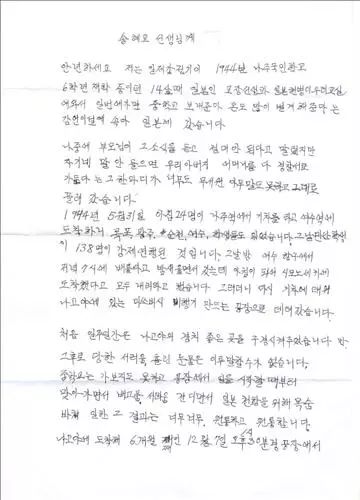 송혜교 선생님께
안녕하세요 저는 일제강점기인 1944년 나주국민학교
6학년 재학 중이던 14살때 일본인 교장선생과 일본헌병이 우리교실
에와서 일본에가면 중학교 보내준다 돈도 많이 벌게해준다는
감언이설에 속아 일본에 갔습니다
나중에 부모님이 그소식을 듣고 절대안된다고 말렸지만
자기네 말 안 들으면 우리아버지 어머니를 다 경찰서로
가둔다 는 그한마디가 너무도 무서워 아무말도 못하고 그대로
끌려 갔습니다.
1944년 5월31일 아침 24명이 나주역에서 기차를 타고 여수역에
도착하니 목포, 광주, 순천, 여수, 학생들도 있었습니다. 그날
이 138명이 강제연행된 것입니다. 그날밤 여수 항구에서
저녁 9시에 배를타고 밤새울면서 갔는데 아침이 되어 시모노세키에
도착했다고 모두 내리라고 했습니다 그러더니 다시 기차에 태워
나고야에 있는 미쓰비시 비행기 만드는 공장으로 데려갔습니다.
처음 일주일간은 나고야의 경치 좋은 곳을 구경시켜주었습니다
그후로 당한 서러움 흘린 눈물은 이루말할수가 없습니다.
중학교는 가보지도 못하고 공장에서 일을 시작할때부터
맞아가면서 배고픔, 서러움 견디면서 일본 전쟁을 위해 목숨
바쳐 일한 그 결과는 너무너무 원통하고 원통합니다
나고야에 도착해 6개월 째인 12월 7일 오후 1시30분경 공장에서